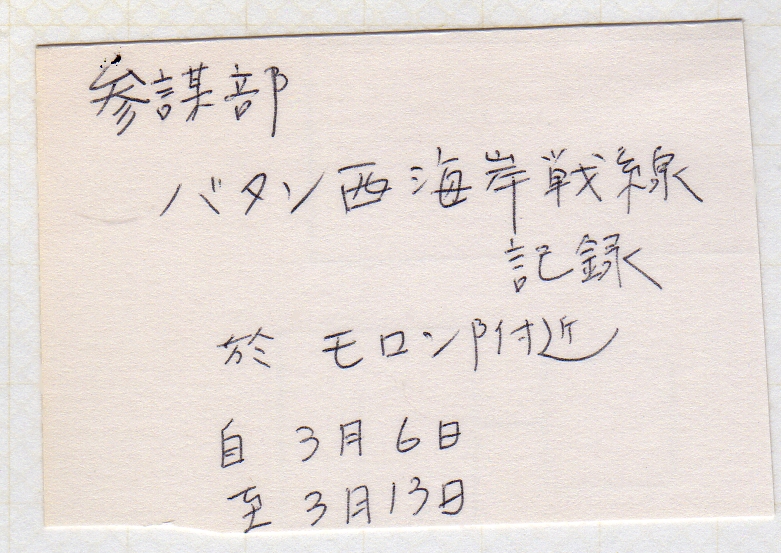 参謀部
バタン西海岸戦線
記録
於 モロン附近
自 3月6日
至 3月13日